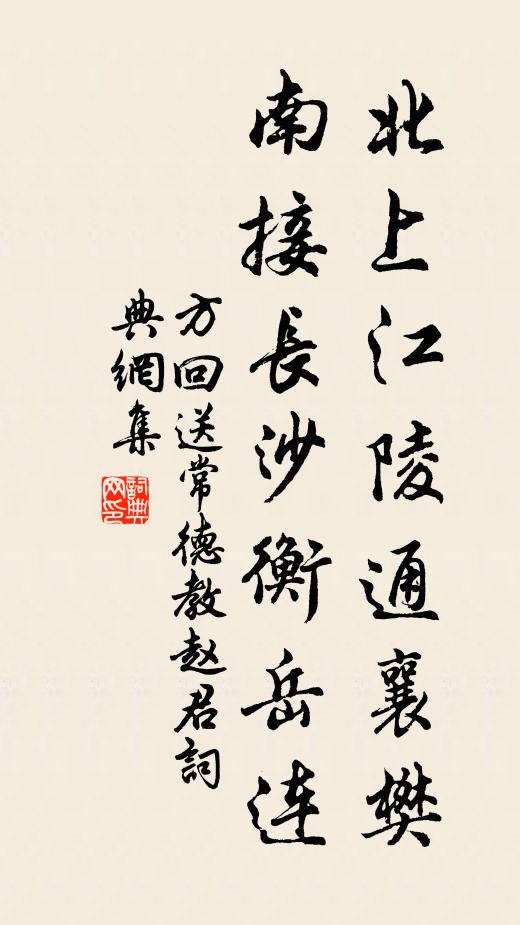 北上江陵通襄樊
南接長沙衡岳連
方回送常德教赵君詞
典網集
詞典网印